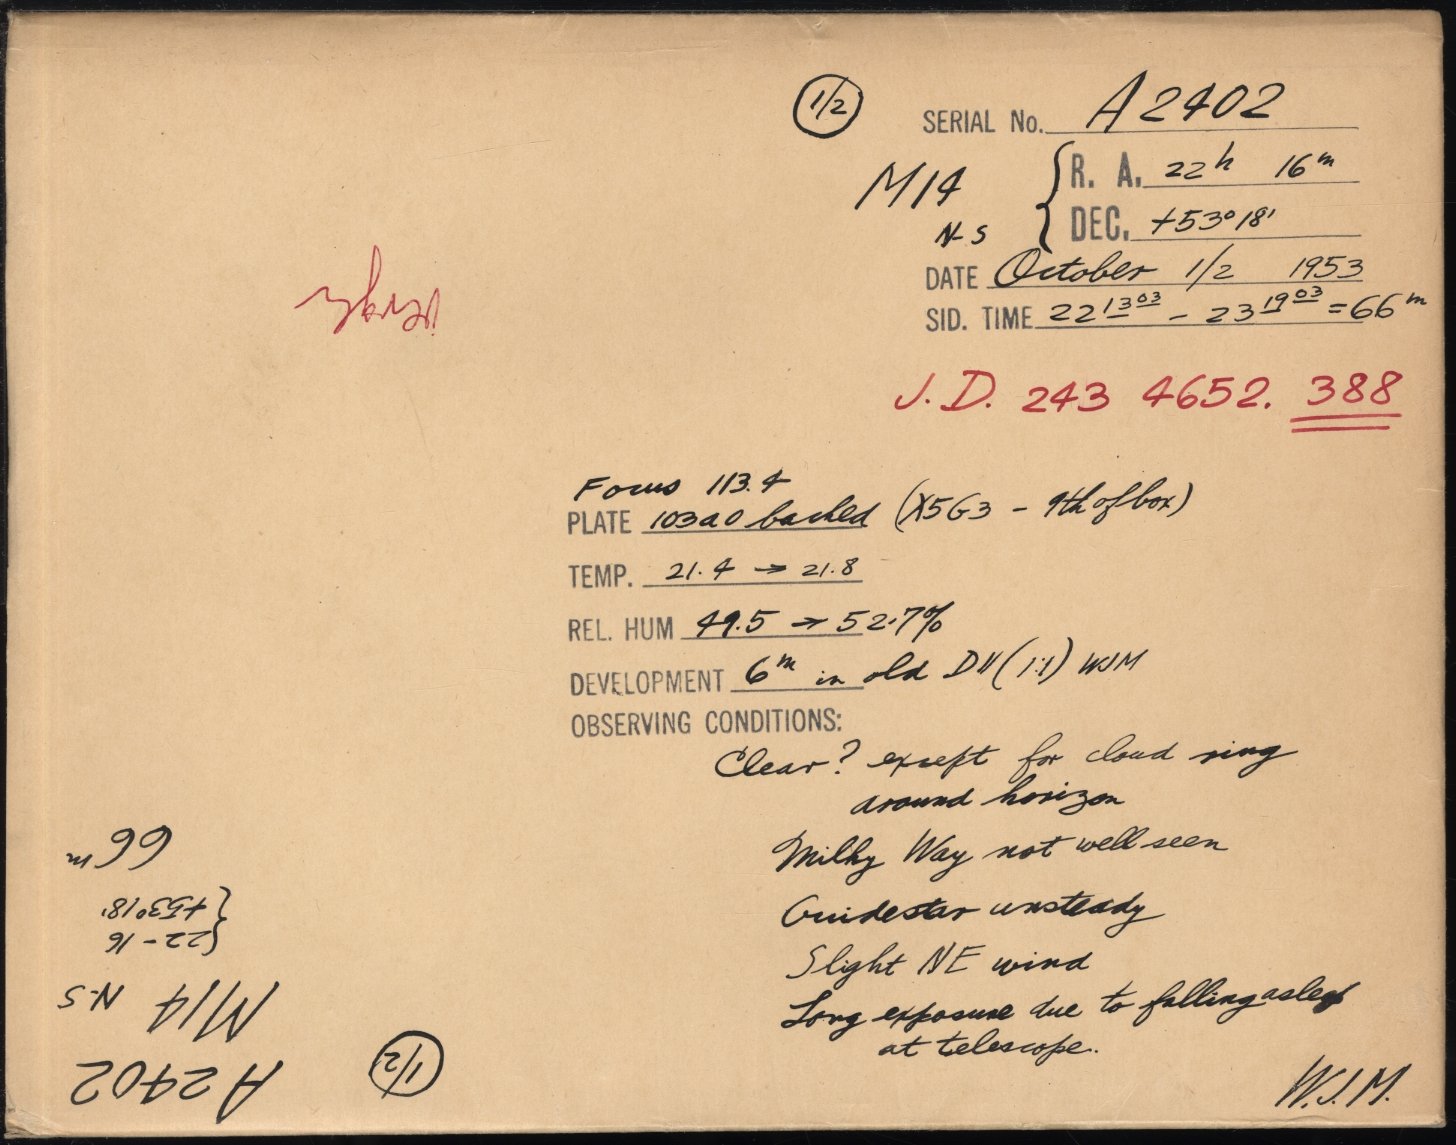 1/2
SERIAL No. A2402
M14
N-S
R. A. 22h 16m
DEC. +53°18'
DATE October 1/2 1953
SID. TIME 22 13 03 - 23 19 03 = 66m
J.D. 243 4652. 388
Focus 113.4
PLATE 103aO backed (X5G3 - 9th of box)
TEMP. 21.4 → 21.8
REL. HUM 49.5 → 52.7%
DEVELOPMENT 6m in old D11 (1:1) WJM
OBSERVING CONDITIONS:
Clear? except for cloud ring
around horizon
Milky Way not well seen
Guidestar unsteady
Slight NE wind
Long exposure due to falling asleep
at telescope.
W.J.M.
1/2
A2402
M14 N-S
22-16
+53°18'
66m